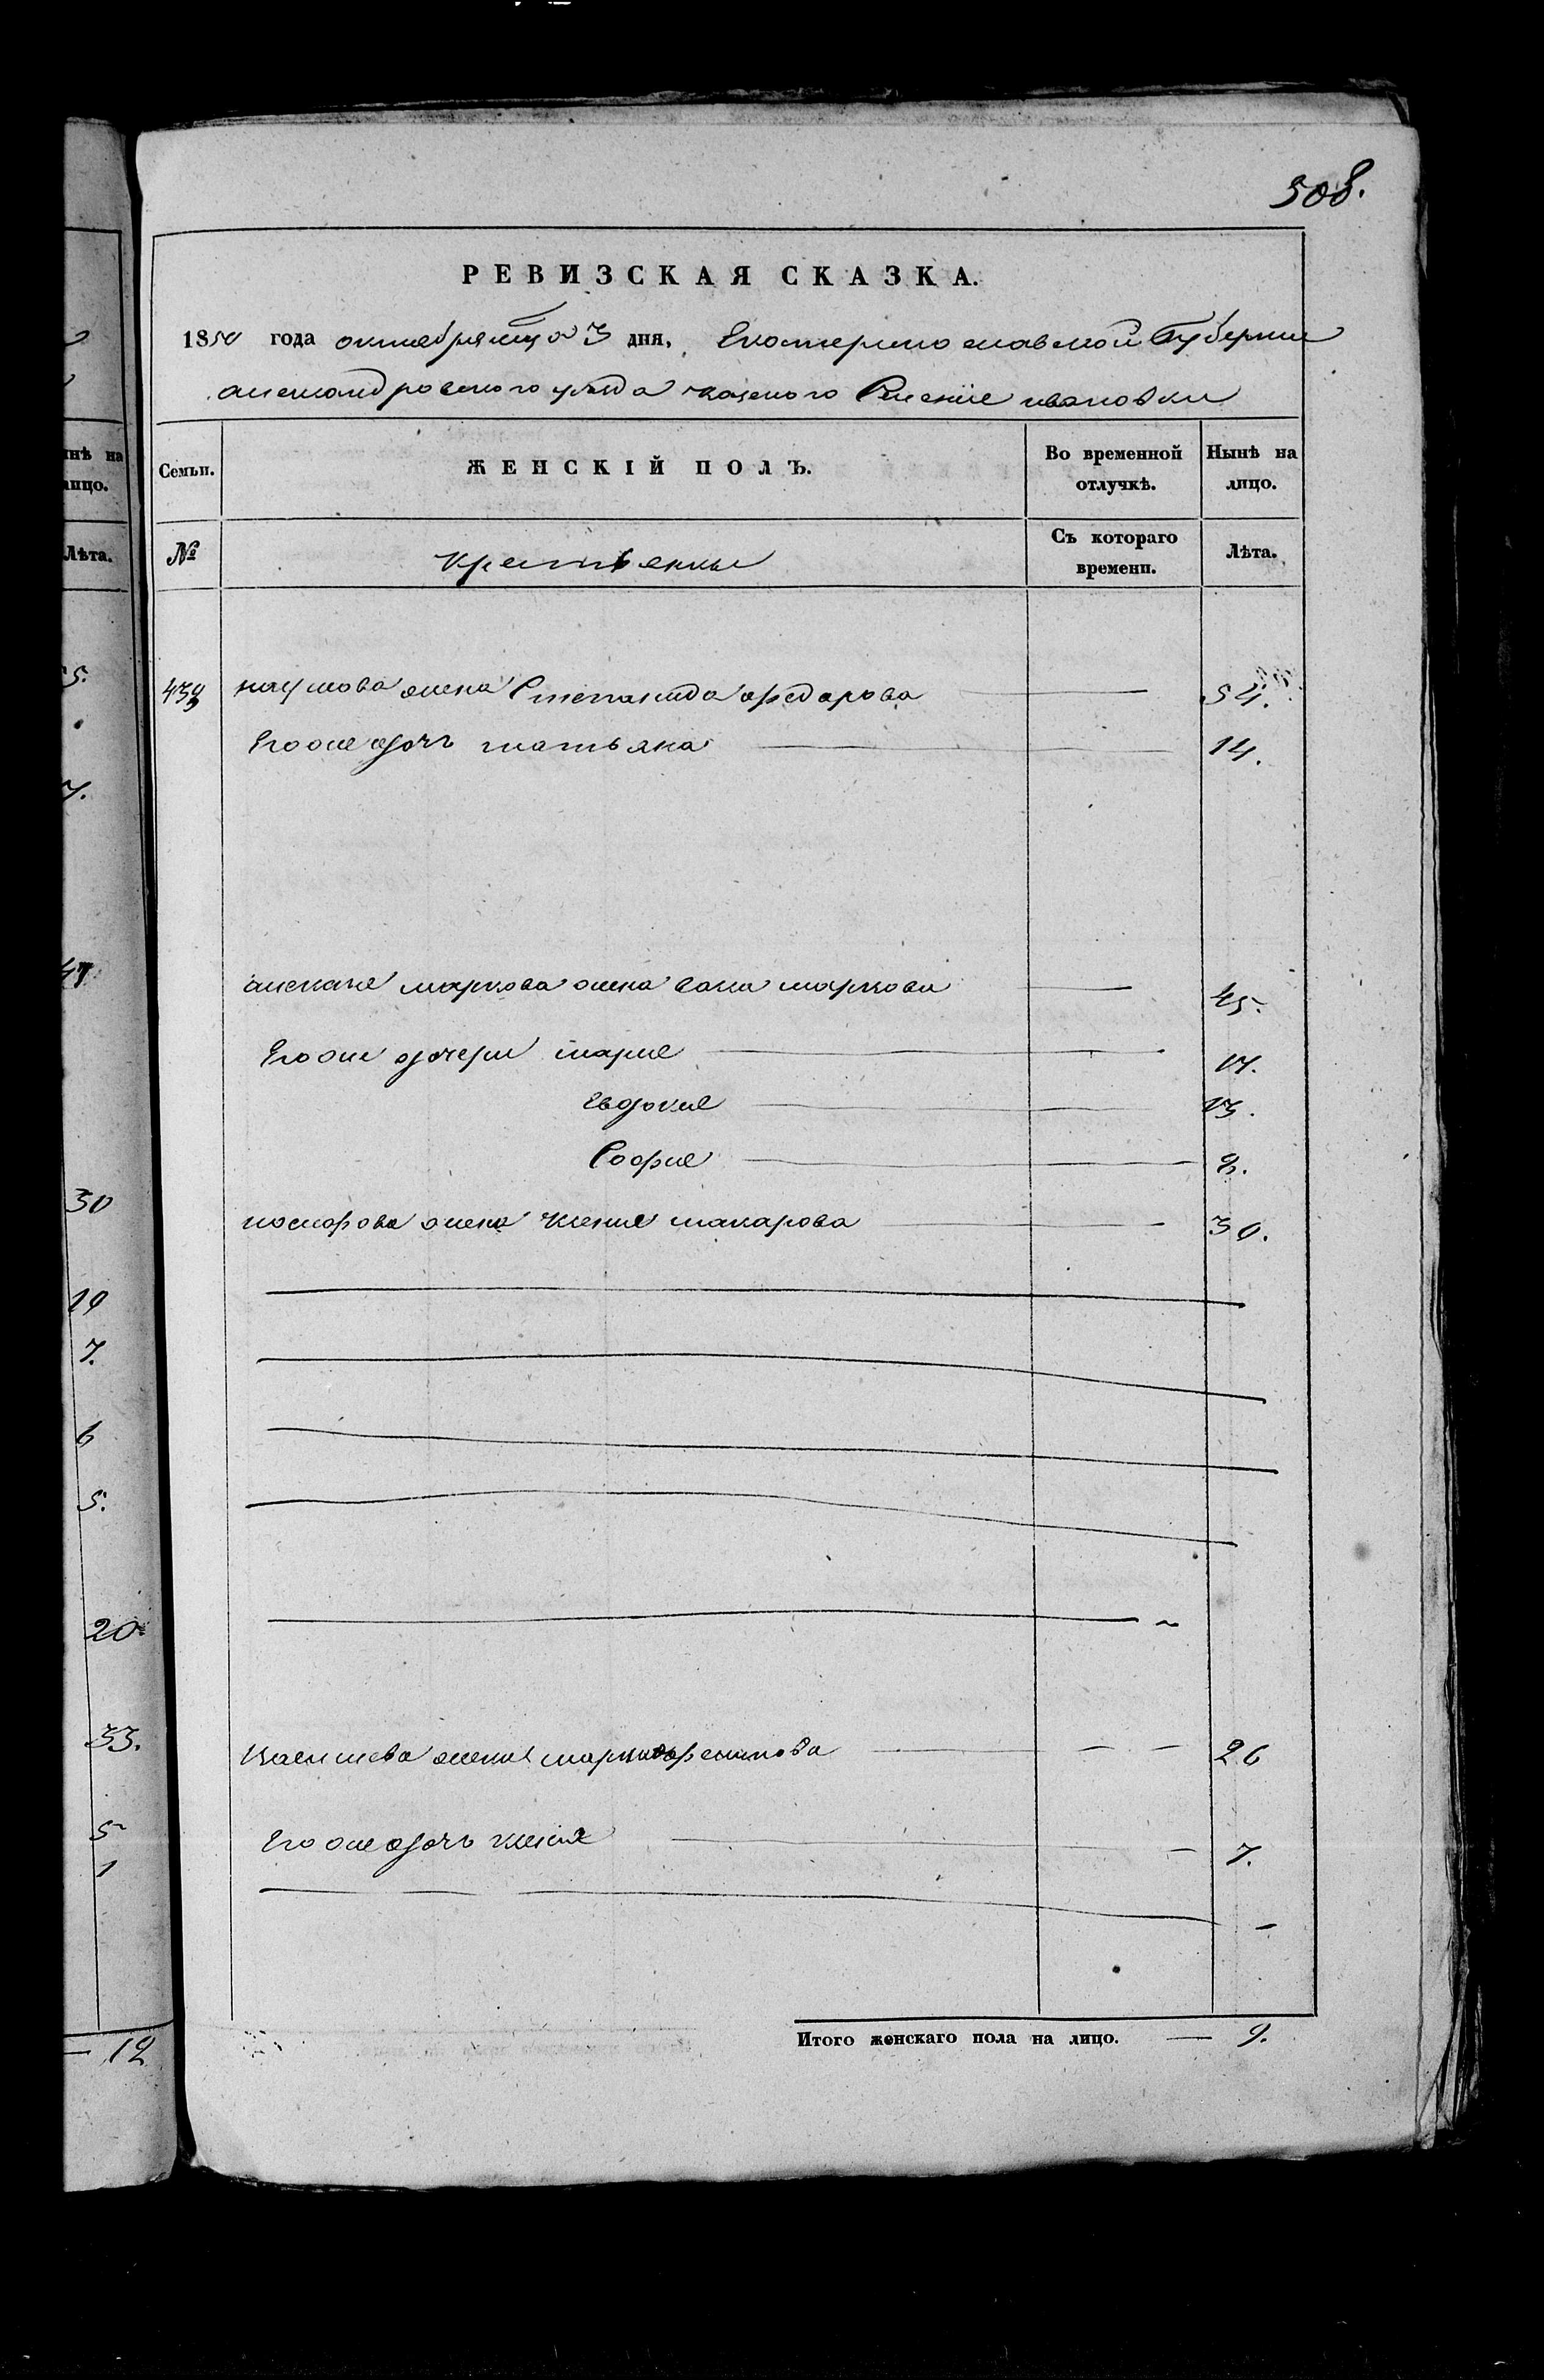 508.
РЕВИЗСКАЯ СКАЗКА.
1850 года октября мца 3 дня, Екатеринославской Губернии
александровского уезда казеного Селение ивановки
Семьи.
ЖЕНСКІЙ ПОЛЪ.
Во временной отлучкѣ.
Нынѣ на лицо.
№
крестьянки
Съ котораго времени.
Лѣта.
439 наумова жена Степанида федарова 54.
Его же дочь татьяна 14.
маркова жена маркова 45.
Его же дочери марие 17.
Евдокие 13.
Софие 8.
жена ксение макарова 30.
жена 26
Его же дочь ксения 7.
Итого женскаго пола на лицо. — 9.
нѣ на
лицо.
Лѣта.
5.
7.
47
30
19
7.
6
5.
20
33.
5
1
— 12